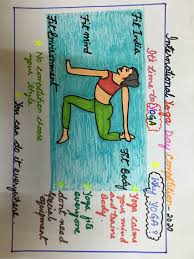 International Yoga Day Competition - 2020
It's time to YOGA
Why YOGA??
Fit India
Fit mind
Fit Environment
Fit Body
Yoga calms
your mind
and trains
body
Yoga fits
everyone
don't need
equipment
No Competition choose
your style
You can do it everywhere